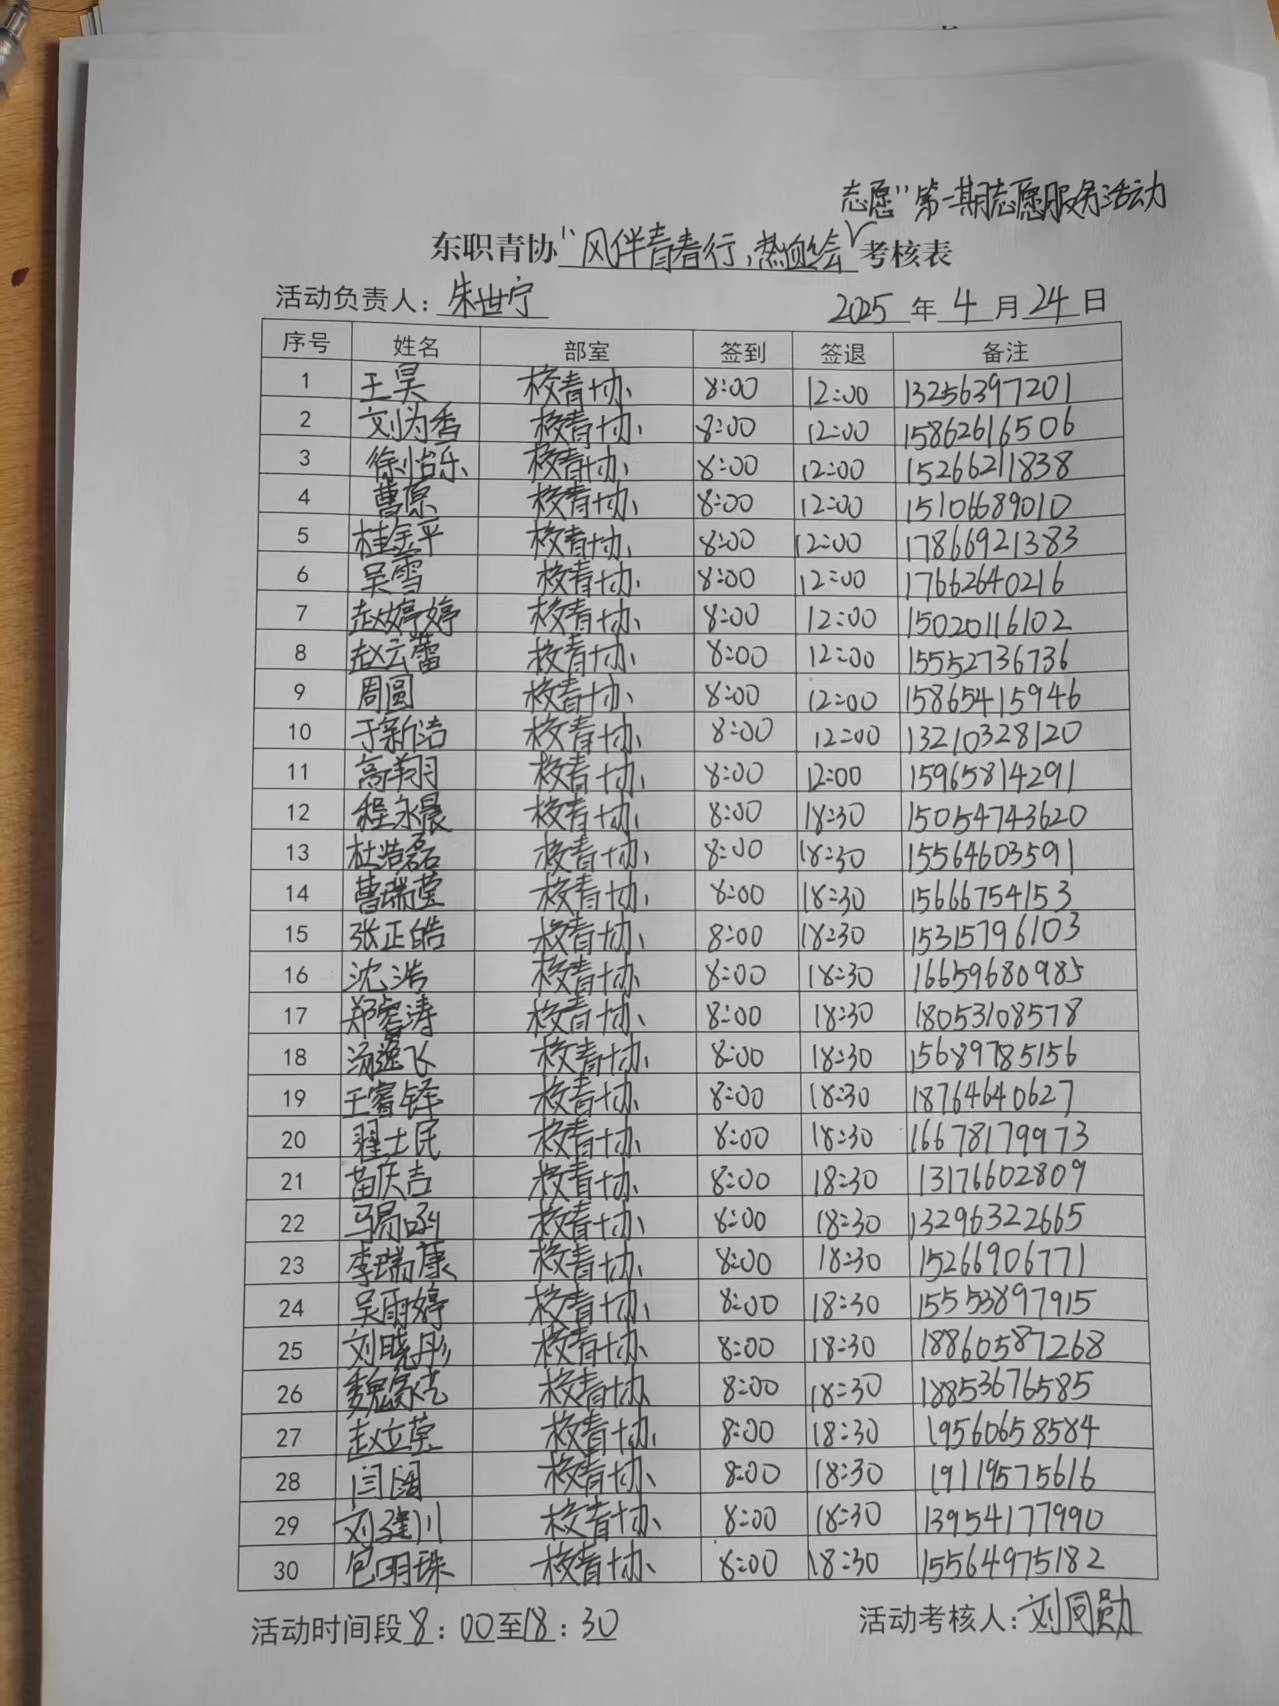 志愿"第一期志愿服务活动
东职青协"风伴青春行,热血绘考核表
活动负责人:朱世宁 2025年4月24日
序号 姓名 部室 签到 签退 备注
1 王昊 校青协 8:00 12:00 13256397201
2 刘为香 校青协 8:00 12:00 15862616506
3 徐怡乐 校青协 8:00 12:00 15266211838
4 曹原 校青协 8:00 12:00 15106689010
5 桂金平 校青协 8:00 12:00 17866921383
6 吴雪 校青协 8:00 12:00 17662640216
7 赵婷婷 校青协 8:00 12:00 15020116102
8 赵云蕾 校青协 8:00 12:00 15552736736
9 周圆 校青协 8:00 12:00 15865415946
10 于新洁 校青协 8:00 12:00 13210328120
11 高翔 校青协 8:00 12:00 15965814291
12 程永晨 校青协 8:00 18:30 15054743620
13 杜浩磊 校青协 8:00 18:30 15564603591
14 曹瑞莹 校青协 8:00 18:30 15666754153
15 张正皓 校青协 8:00 18:30 15315796103
16 沈浩 校青协 8:00 18:30 16659680985
17 郑睿涛 校青协 8:00 18:30 18053108578
18 汤逸飞 校青协 8:00 18:30 15689785156
19 王睿铎 校青协 8:00 18:30 18764640627
20 翟士民 校青协 8:00 18:30 16678179973
21 苗庆吉 校青协 8:00 18:30 13176602809
22 马 校青协 8:00 18:30 13296322665
23 李瑞康 校青协 8:00 18:30 15266906771
24 吴雨婷 校青协 8:00 18:30 15553897915
25 刘晓彤 校青协 8:00 18:30 18860587268
26 魏 校青协 8:00 18:30 18853676585
27 赵立莹 校青协 8:00 18:30 19560658584
28 闫阔 校青协 8:00 18:30 19119575616
29 刘 川 校青协 8:00 18:30 13954177990
30 包明珠 校青协 8:00 18:30 15564975182
活动时间段8:00至18:30 活动考核人:刘同勋